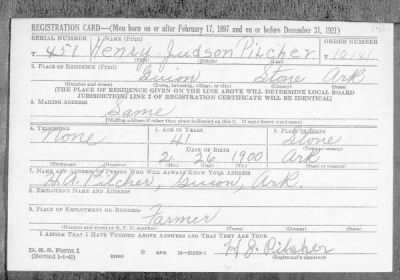 REGISTRATION CARD—(Men born on or after February 17, 1897 and on or before December 31, 1921)
SERIAL NUMBER 1. NAME (Print) ORDER NUMBER
T 451 Henry Judson Pilcher 10141
(First) (Middle) (Last)
2. PLACE OF RESIDENCE (Print)
Guion Stone Ark
(Number and street) (Town, township, village, or city) (County) (State)
[THE PLACE OF RESIDENCE GIVEN ON THE LINE ABOVE WILL DETERMINE LOCAL BOARD
JURISDICTION; LINE 2 OF REGISTRATION CERTIFICATE WILL BE IDENTICAL]
3. MAILING ADDRESS
Same
[Mailing address if other than place indicated on line 2. If same insert word same]
4. TELEPHONE 5. AGE IN YEARS 6. PLACE OF BIRTH
None 41 Stone
DATE OF BIRTH (Town or county)
2 26 1900 Ark
(Exchange) (Number) (Mo.) (Day) (Yr.) (State or country)
7. NAME AND ADDRESS OF PERSON WHO WILL ALWAYS KNOW YOUR ADDRESS
Pilcher Guion, Ark.
8. EMPLOYER'S NAME AND ADDRESS
9. PLACE OF EMPLOYMENT OR BUSINESS
Farmer
(Number and street or R. F. D. number) (Town) (County) (State)
I AFFIRM THAT I HAVE VERIFIED ABOVE ANSWERS AND THAT THEY ARE TRUE.
H J. Pilcher
D. S. S. Form 1
(Revised 1-1-42) (over) GPO 16—21630-1 (Registrant's signature)